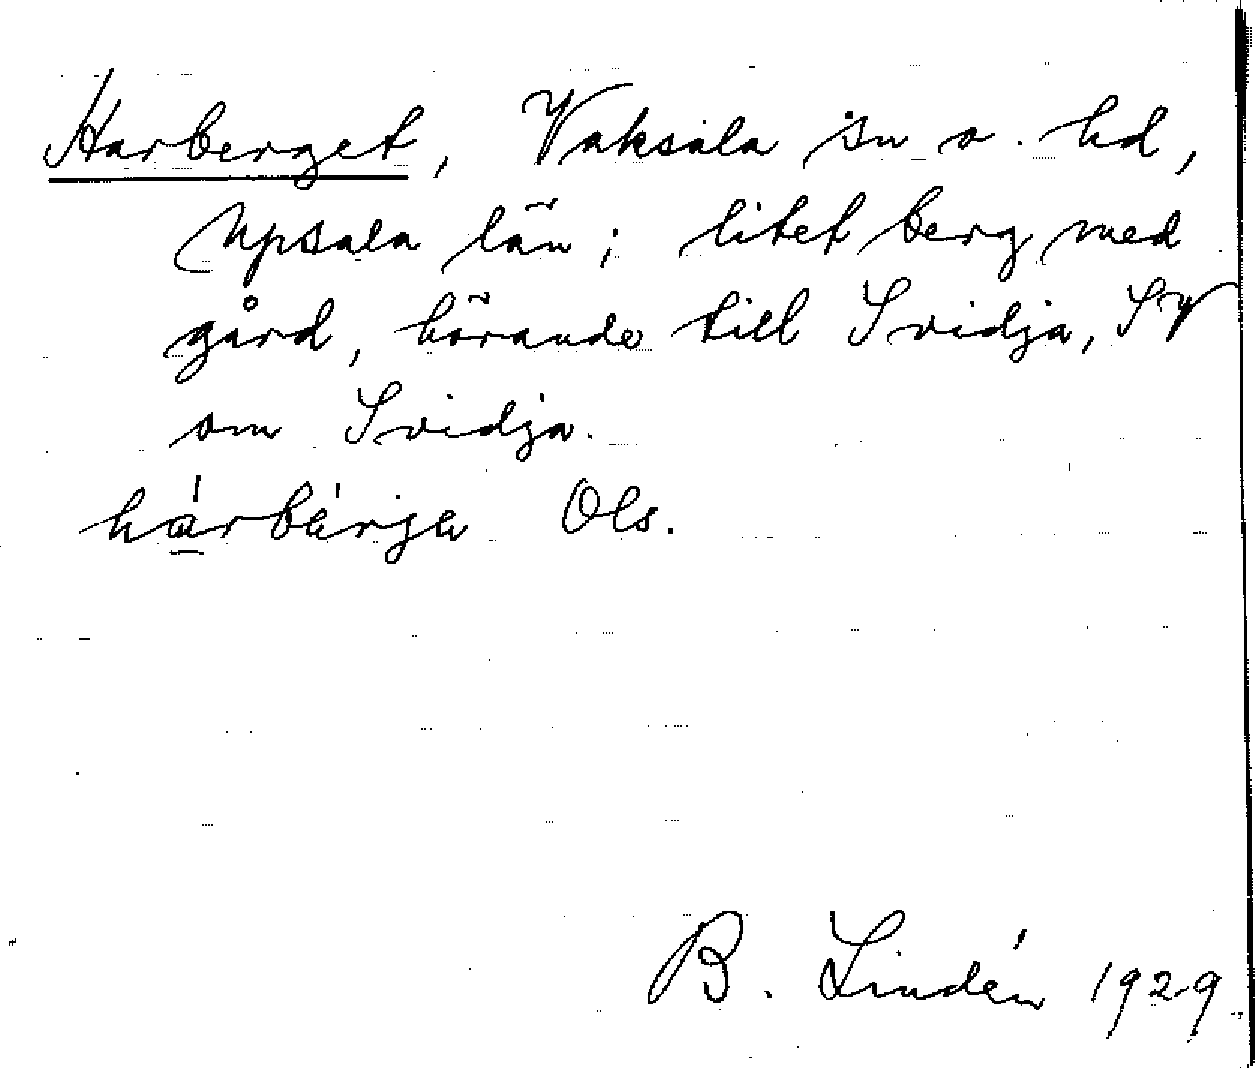 Harberget, Vaksala sn o. hd,
Upsala län; litet berg med
gård, hörande till Svidja, SV
om Svidja.
hárbárja Ols.
B. Lindén 1929